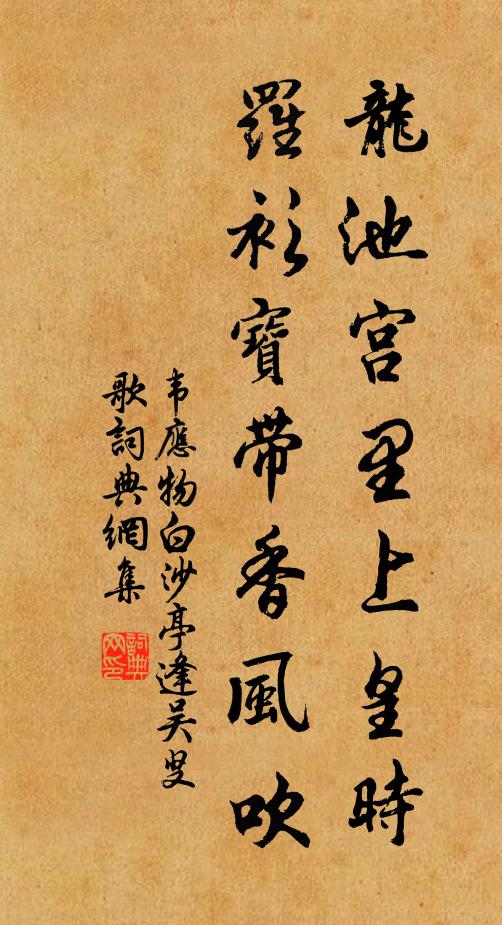 龍池宮里上皇時
羅衫寶帶香風吹
韦應物白沙亭逢吴叟
歌詞典網集
詞典網印